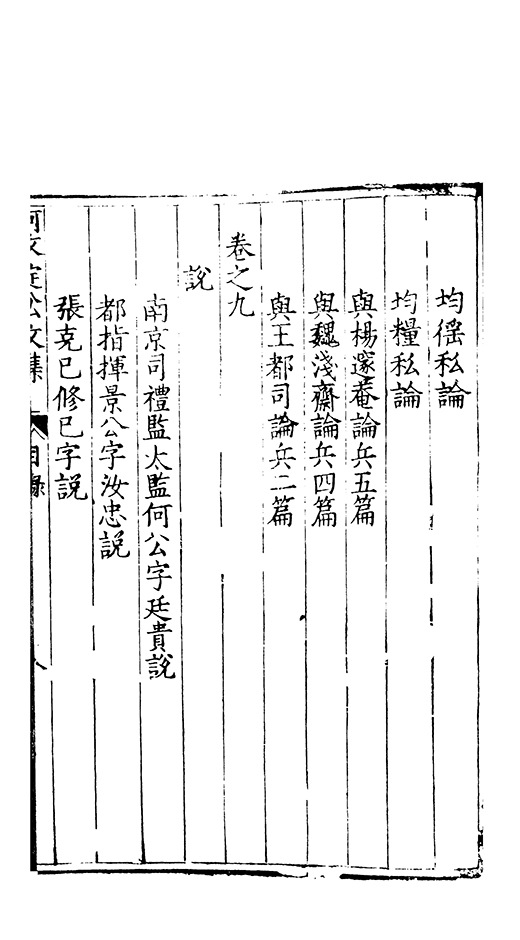 均徭私論
均糧私論
與楊邃菴論兵五篇
與魏淺齋論兵四篇
與王都司論兵二篇
卷之九
說
南京司禮監太監何公字廷貴說
都指揮景公字汝忠說
張克已修已字說
何文定公文集
目錄
八